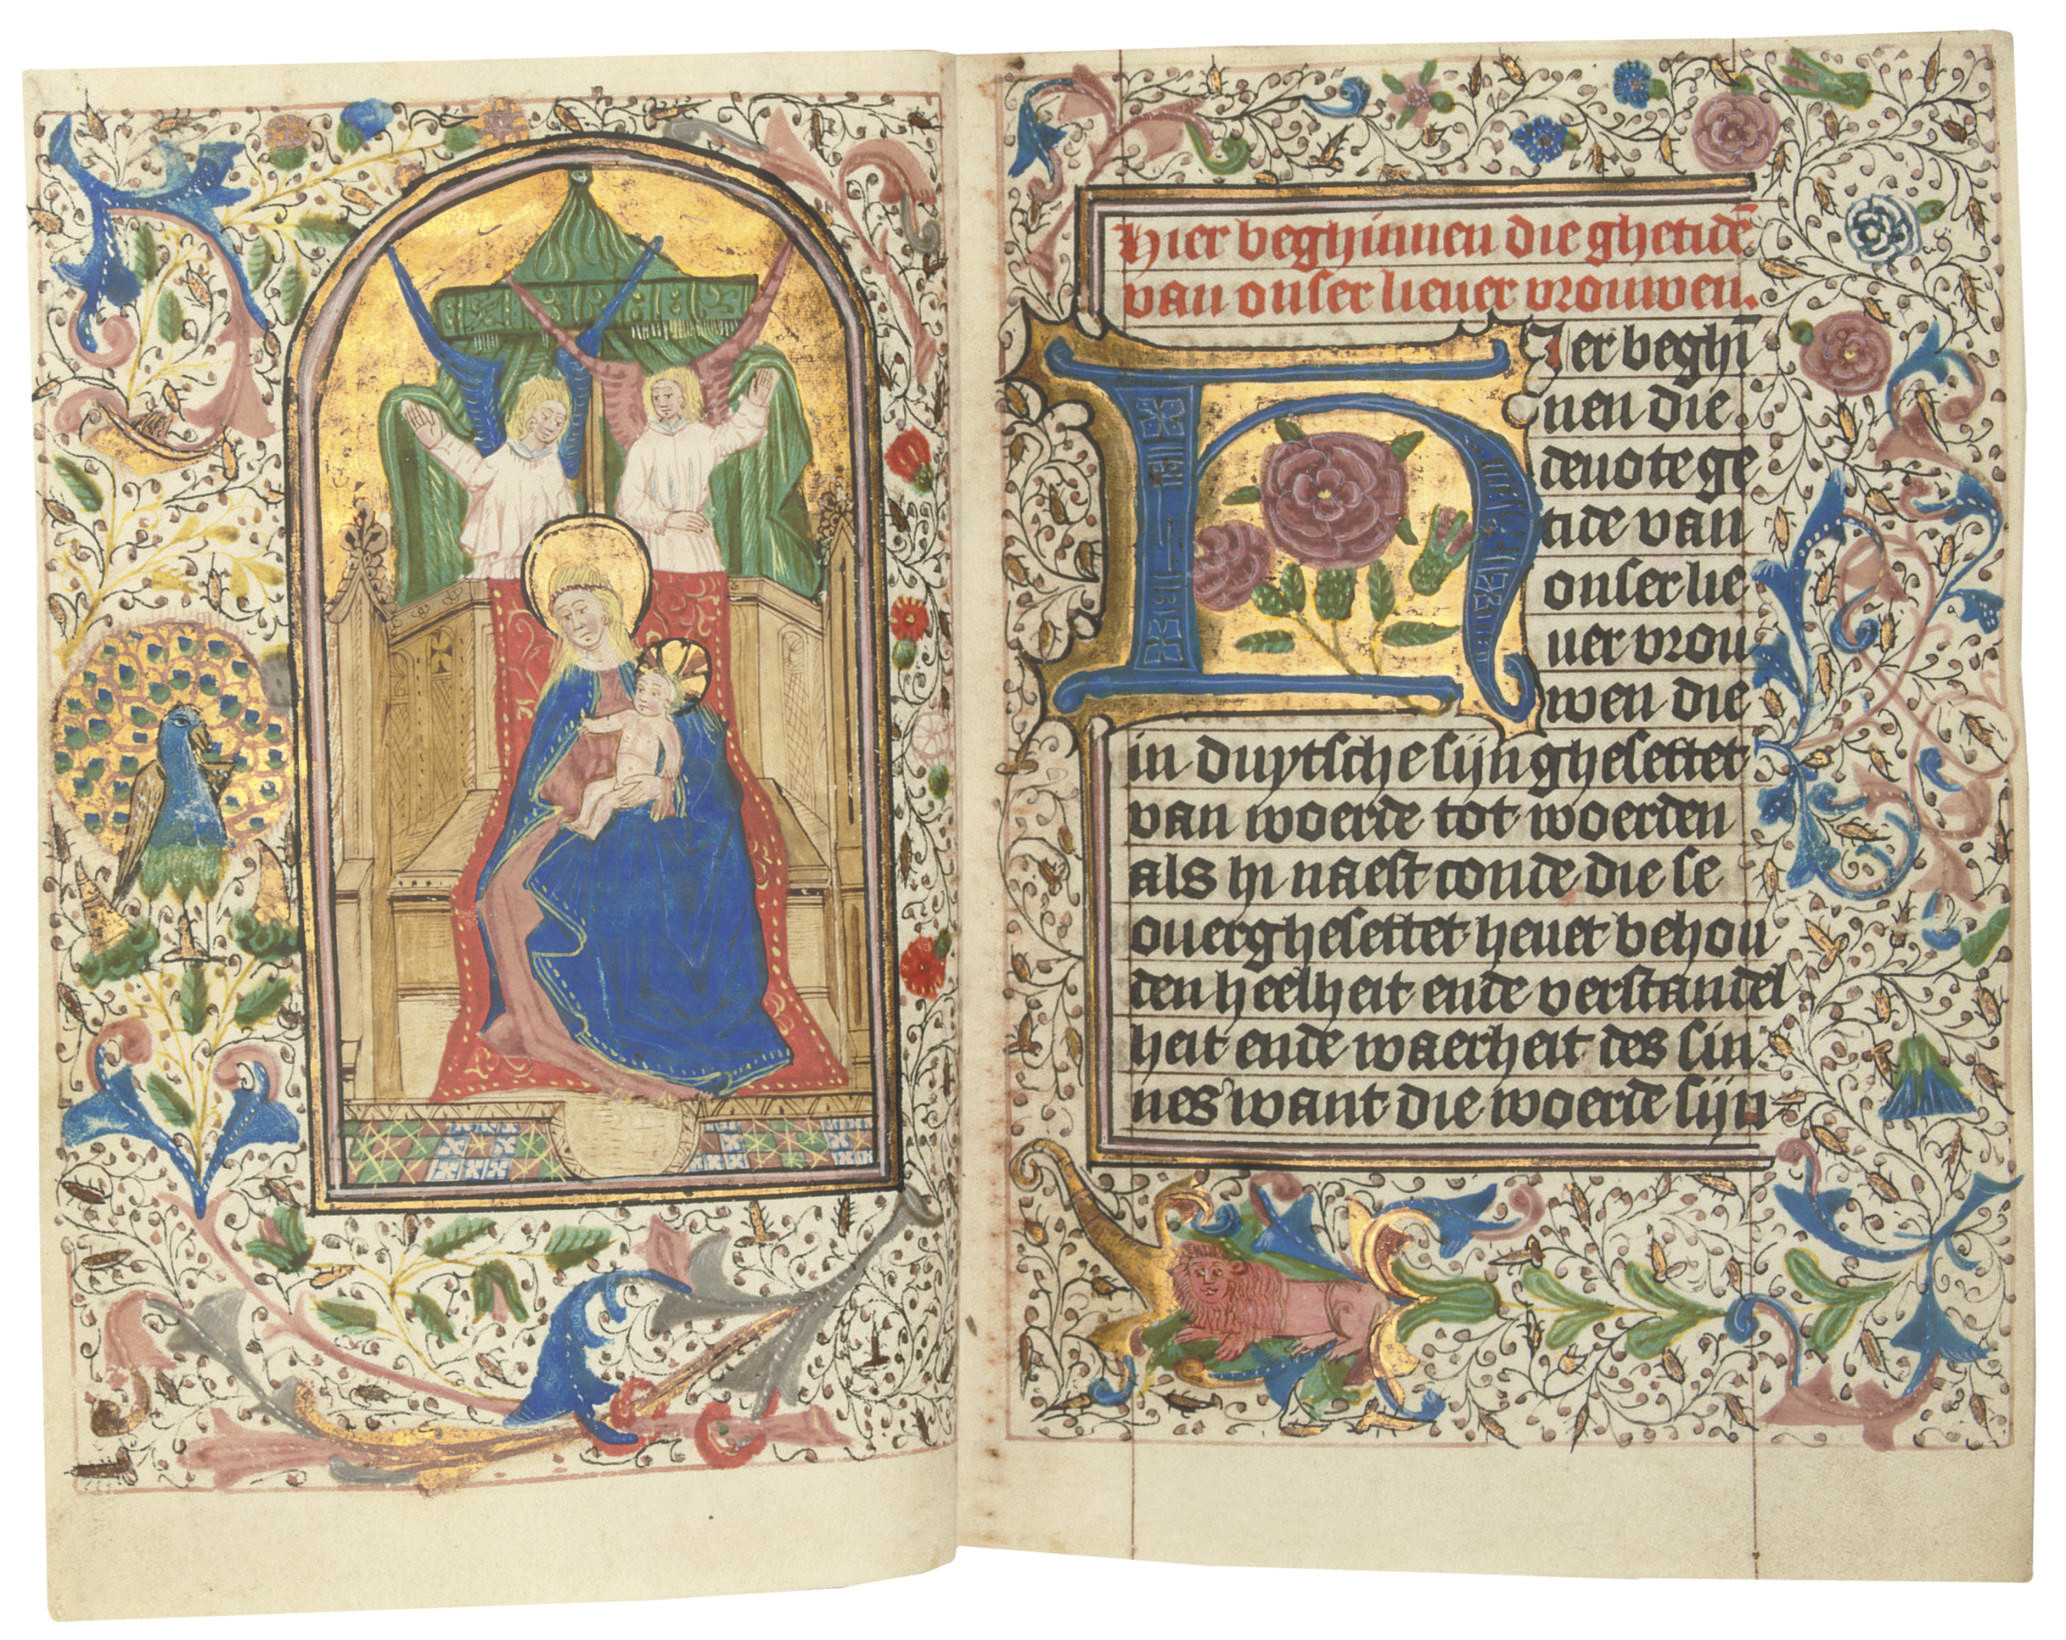 Hier beghinnen die ghetidē
van onser lieuer vrouwen.
Hier beghī
nen die
deuote ge
tide van
onser lie
uer vrou
wen die
in duytsche sijn ghesettet
van woerde tot woerden
als hi naest conde die se
ouerghesettet heuet behou
den heelheit ende verstandel
heit ende waerheit des sin
nes want die woerde sijn